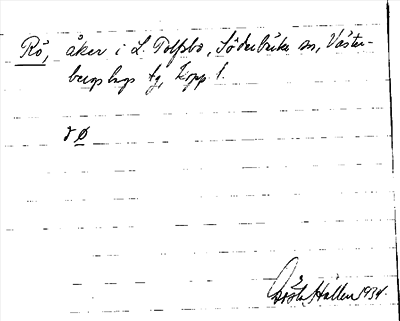 Rö, åker i L. Tolfsbo, Söderbärke sn, Väster-
bergslags tg, Kopp l.
r ø
Gösta Hallen 1934.